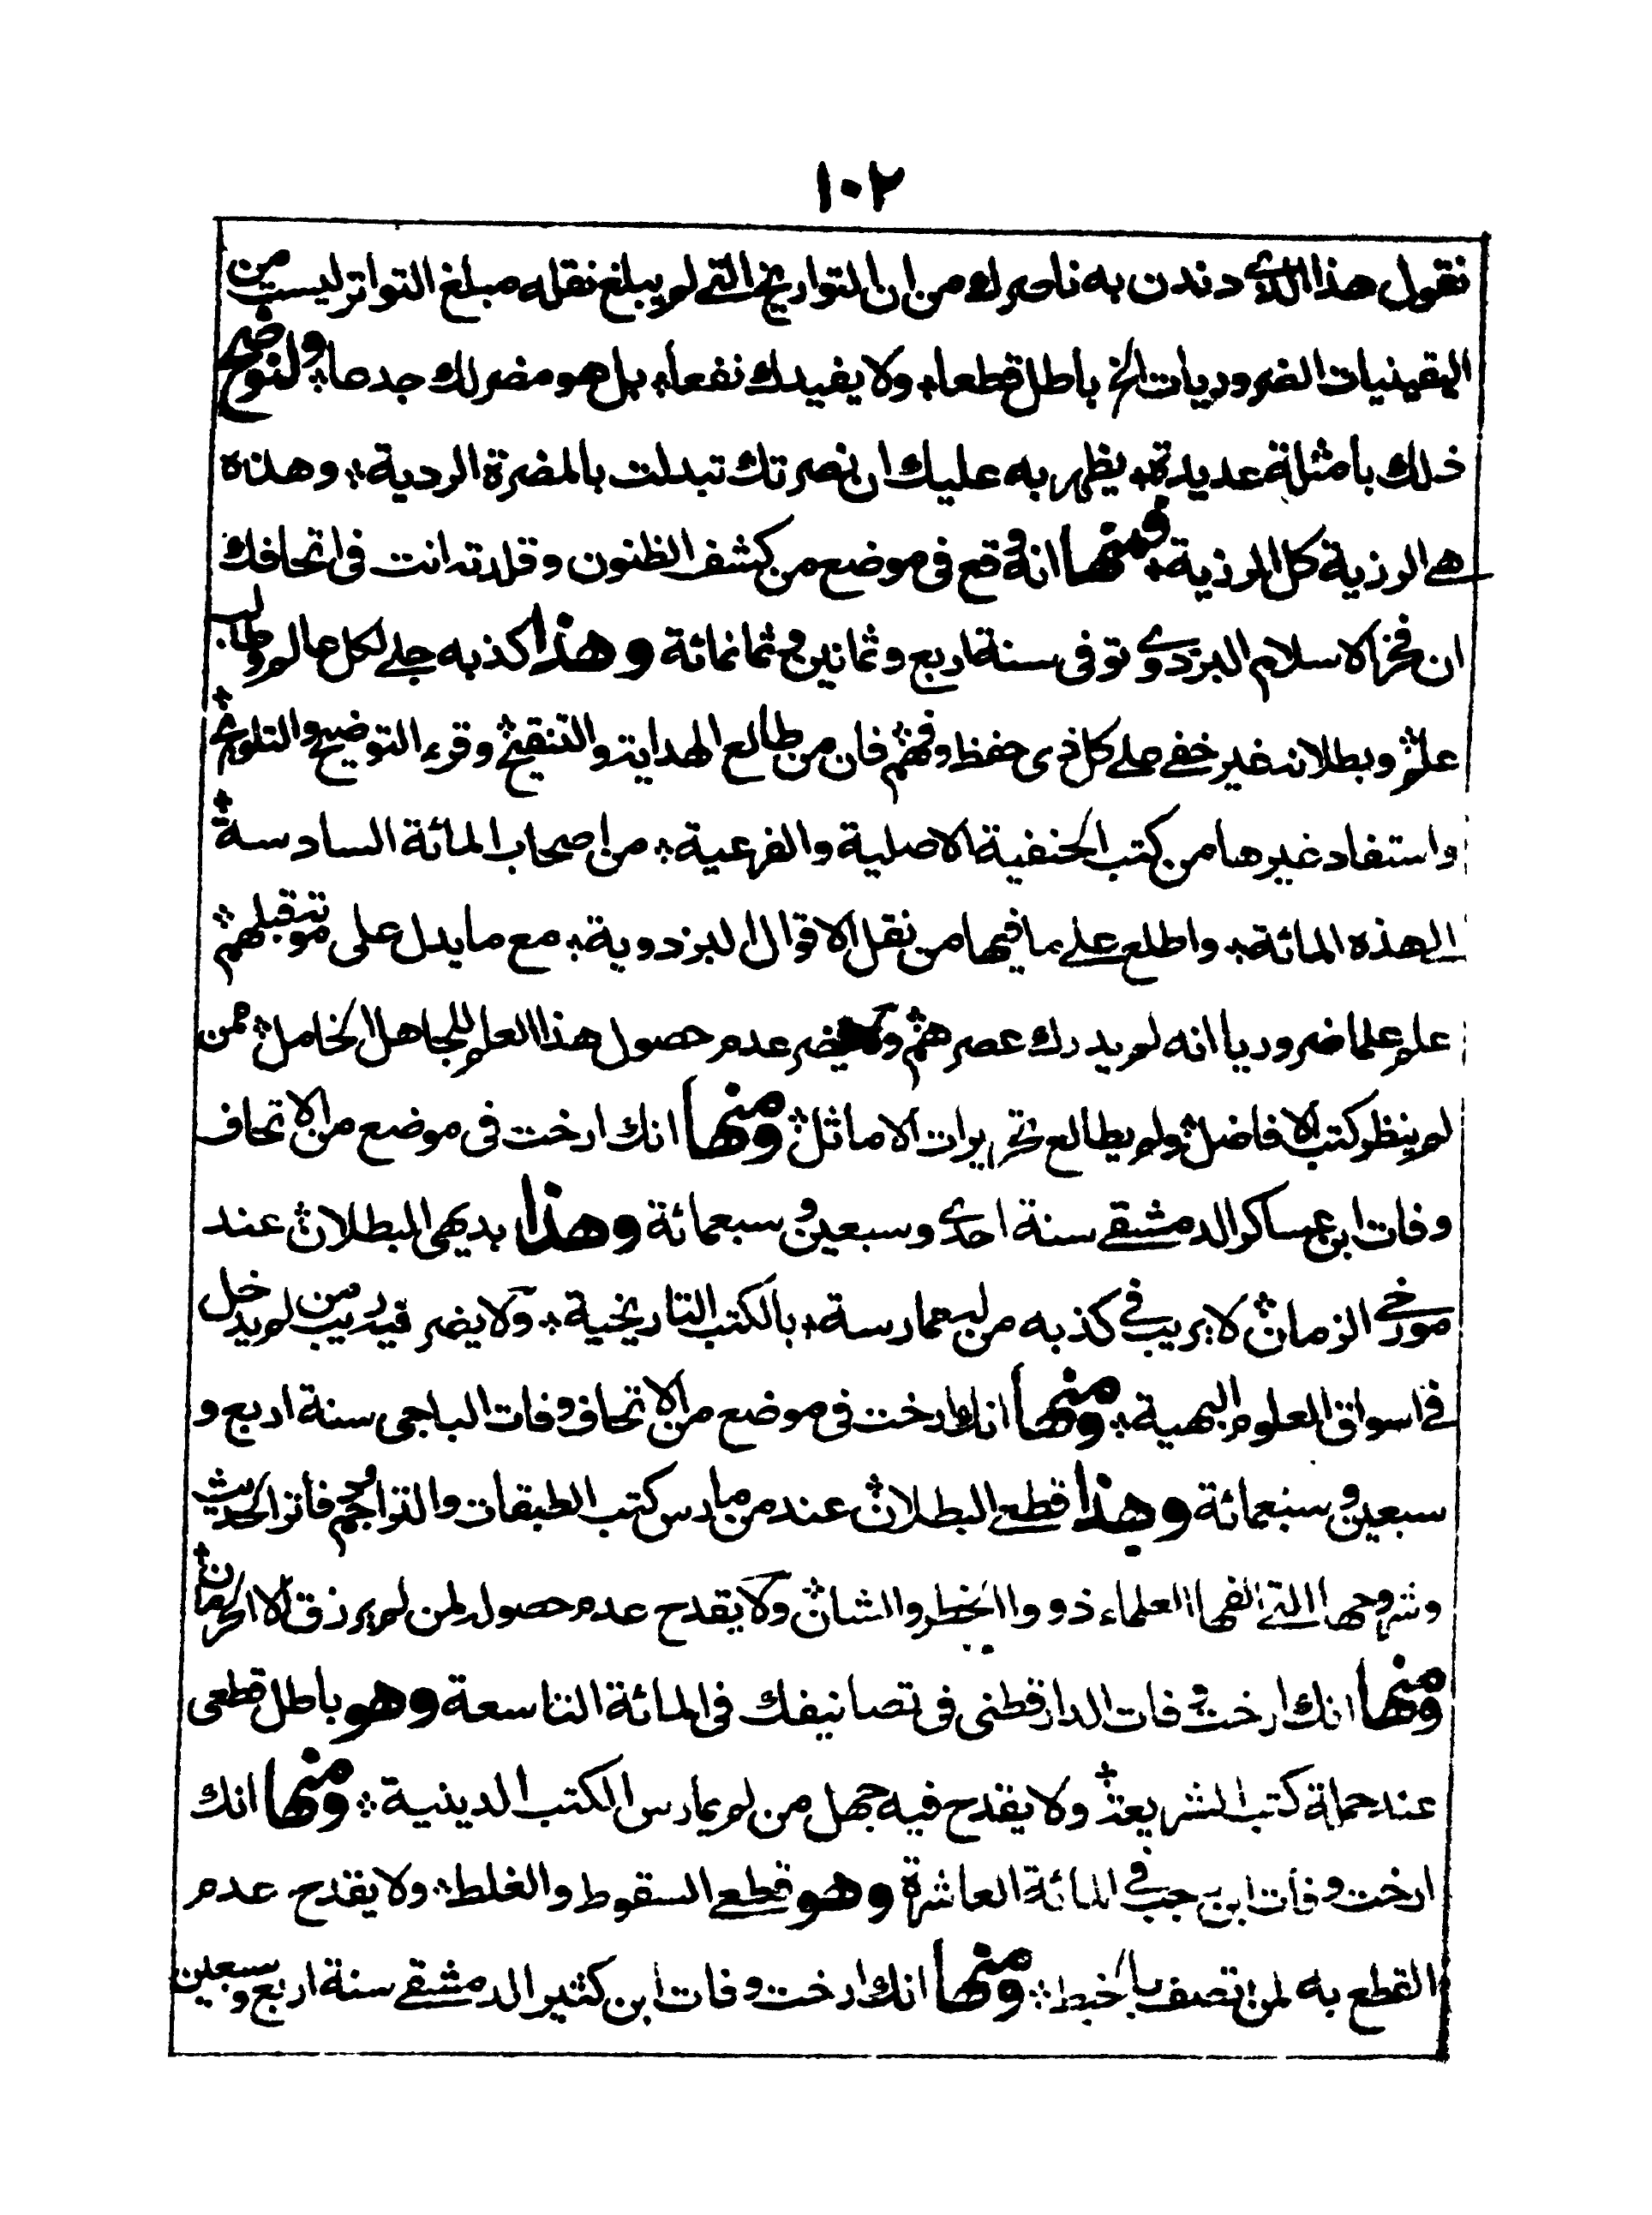 ١٠٢
نقول هذا الذي دندن به ناصرك من ان التواريخ التي لم يبلغ نقله مبلغ التواتر ليست من
اليقينيات الضروريات الخ باطل قطعا؞ ولا يفيدك نفعا؞ بل هو مضر لك جدعا؞ ولنوضح
ذلك بامثلة عديدة؞ يظهر به عليك ان نصرتك تبدلت بالمضرة الردية؞ وهذه
هي الرزية كل الرزية؞ فمنها انه وقع في موضع من كشف الظنون وقلدته انت في اتحافك
ان فخر الاسلام البزدوي توفى سنة اربع وثمانين وثمانمائة وهذا كذبه جلي لكل عالم وطالب
علم؞ وبطلانه غير خفي على كل ذي حفظ وفهم؞ فان من طالع الهداية والتنقيح؞ وقرء التوضيح والتلويح؞
واستفاد غيرها من كتب الحنفية الاصلية والفرعية؞ من اصحاب المائة السادسة؞
الى هذه المائة؞ واطلع على ما فيها من نقل الاقوال البزدوية؞ مع ما يدل على موته قبلهم؞
علم علما ضروريا انه لم يدرك عصرهم؞ ولا يضر عدم حصول هذا العلم للجاهل الخامل؞ ممن
لم ينظر كتب الافاضل؞ ولم يطالع تحريرات الاماثل؞ ومنها انك ارخت في موضع من الاتحاف
وفات ابن عساكر الدمشقي سنة احدى وسبعين وسبعمائة وهذا بديهي البطلان؞ عند
مورخي الزمان؞ لا يريب في كذبه من له ممارسة؞ بالكتب التاريخية؞ ولا يضر فيه ريب من لم يدخل
في اسواق العلوم البهية؞ ومنها انك ارخت في موضع من الاتحاف وفات الباجى سنة اربع و
سبعين وسبعمائة وهذا قطعي البطلان؞ عند من مارس كتب الطبقات والتراجم ودفاتر الحديث
وشروحها التي الفها العلماء ذووا الخطر والشان؞ ولا يقدح عدم حصوله لمن لم يرزق الا الحرمان؞
ومنها انك ارخت وفات الدارقطنى في تصانيفك في المائة التاسعة وهو باطل قطعى
عند حملة كتب الشريعة؞ ولا يقدح فيه جهل من لم يمارس الكتب الدينية؞ ومنها انك
ارخت وفات ابن رجب في المائة العاشرة وهو قطعي السقوط والغلط؞ ولا يقدح عدم
القطع به لمن اتصف بالخبط؞ ومنها انك ارخت وفات ابن كثير الدمشقي سنة اربع وسبعين